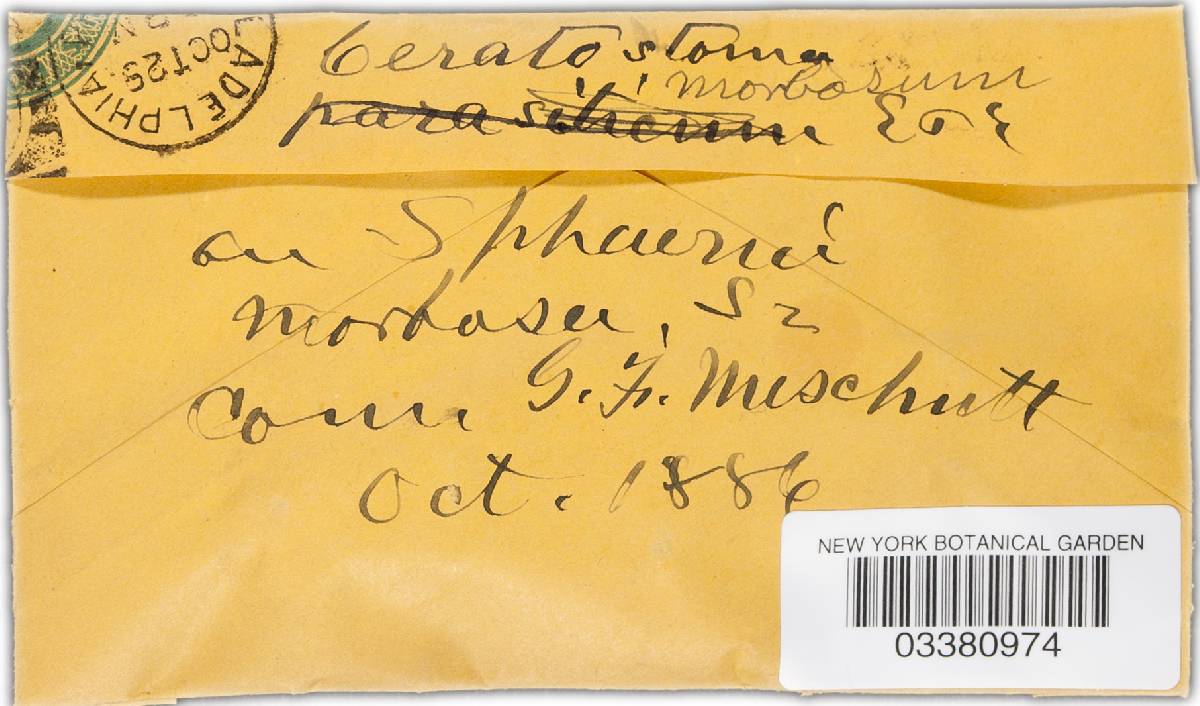 ADELPHIA
OCT 25
Ceratostoma
morbosum
parasiticum E & E
on Sphaeria
morbosa, Sz
Com. G. F. Meschutt
Oct. 1886
NEW YORK BOTANICAL GARDEN
03380974